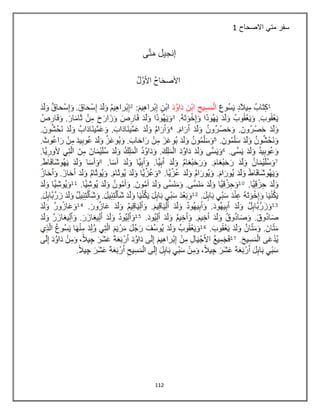 سفر متي الاصحاح 1
إنجيل مَتَّى
الأصحَاحُ الأَوَّلُ
1كِتَابُ مِيلاَدِ يَسُوعَ الْمَسِيحِ ابْنِ دَاوُدَ ابْنِ إِبْراهِيمَ: 2إِبْراهِيمُ وَلَدَ إِسْحاقَ. وَإِسْحاقُ وَلَدَ
يَعْقُوبَ. وَيَعْقُوبُ وَلَدَ يَهُوذَا وَإِخْوَتَهُ. 3وَيَهُوذَا وَلَدَ فَارِصَ وَزَارَحَ مِنْ ثَامَارَ. وَفَارِصُ
وَلَدَ حَصْرُونَ. وَحَصْرُونُ وَلَدَ أَرَامَ. 4وَأَرَامُ وَلَدَ عَمِّينَادَابَ. وَعَمِّينَادَابُ وَلَدَ نَحْشُونَ.
وَنَحْشُونُ وَلَدَ سَلْمُونَ. 5وَسَلْمُونُ وَلَدَ بُوعَزَ مِنْ رَاحَابَ. وَبُوعَزُ وَلَدَ عُوبِيدَ مِنْ رَاعُوثَ.
وَعُوبِيدُ وَلَدَ يَسَّى. 6وَيَسَّى وَلَدَ دَاوُدَ الْمَلِكَ. وَدَاوُدُ الْمَلِكُ وَلَدَ سُلَيْمَانَ مِنَ الَّتِي لأُورِيَّا.
7وَسُلَيْمَانُ وَلَدَ رَحَبْعَامَ. وَرَحَبْعَامُ وَلَدَ أَبِيَّا. وَأَبِيَّا وَلَدَ آسَا. 8وَآسَا وَلَدَ يَهُوشَافَاطَ.
وَيَهُوشَافَاطُ وَلَدَ يُورَامَ. وَيُورَامُ وَلَدَ عُزِّيَّا. 9وَعُزِّيَّا وَلَدَ يُوثَامَ. وَيُوثَامُ وَلَدَ أَحَازَ. وَأَحَازُ
وَلَدَ حِزْقِيَّا. 10وَحِزْقِيَّا وَلَدَ مَنَسَّى. وَمَنَسَّى وَلَدَ آمُونَ. وَآمُونُ وَلَدَ يُوشِيَّا. 11وَيُوشِيَّا وَلَدَ
يَكُنْيَا وَإِخْوَتَهُ عِنْدَ سَبْيِ بَابِلَ. 12وَبَعْدَ سَبْيِ بَابِلَ يَكُنْيَا وَلَدَ شَأَلْتِئِيلَ. وَشَأَلْتِئِيلُ وَلَدَ زَرُبَّابِلَ.
13وَزَرُبَّابِلُ وَلَدَ أَبِيهُودَ. وَأَبِيهُودُ وَلَدَ أَلِيَاقِيمَ. وَأَلِيَاقِيمُ وَلَدَ عَازُورَ. 14وَعَازُورُ وَلَدَ
صَادُوقَ. وَصَادُوقُ وَلَدَ أَخِيمَ. وَأَخِيمُ وَلَدَ أَلِيُودَ. 15وَأَلِيُودُ وَلَدَ أَلِيعَازَرَ. وَأَلِيعَازَرُ وَلَدَ
مَتَّانَ. وَمَتَّانُ وَلَدَ يَعْقُوبَ. 16وَيَعْقُوبُ وَلَدَ يُوسُفَ رَجُلَ مَرْيَمَ الَّتِي وُلِدَ مِنْهَا يَسُوعُ الَّذِي
يُدْعَى الْمَسِيحَ. 17فَجَمِيعُ الأَجْيَالِ مِنْ إِبْراهِيمَ إِلَى دَاوُدَ أَرْبَعَةَ عَشَرَ جِيلاً، وَمِنْ دَاوُدَ إِلَى
سَبْيِ بَابِلَ أَرْبَعَةَ عَشَرَ جِيلاً، وَمِنْ سَبْيِ بَابِلَ إِلَى الْمَسِيحِ أَرْبَعَةَ عَشَرَ جِيلاً.
112